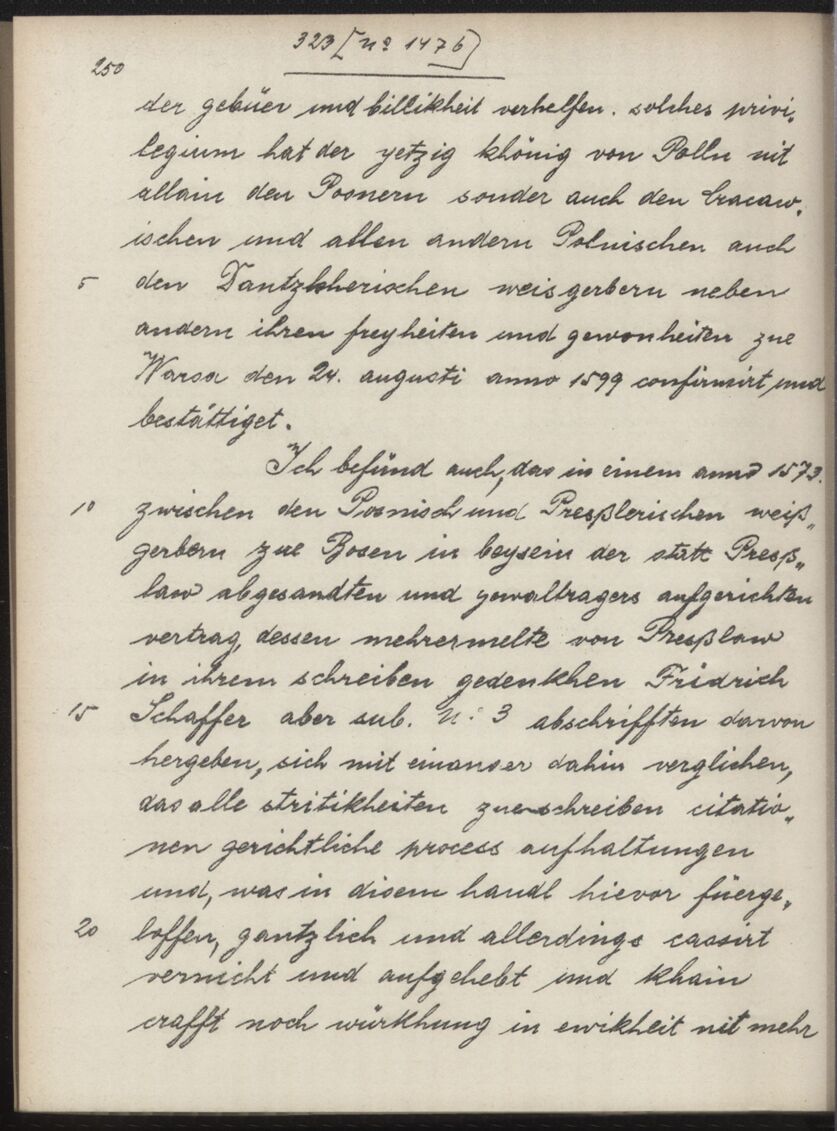 323 [nº 1476]
250
der gebüer und billikheit verhelfen. solches privi„
legium hat der yetzig khönig von Polln nit
allain den Posnern sonder auch den Cracaw„
ischen und allen andern Polnischen auch
5 den Dantzkherischen weisgerbern neben
andern ihren freyheiten und gewonheiten zue
Warsa den 24. augusti anno 1599 confirmirt und
bestättiget.
Ich befünd auch, das in einem anno 1573.
10 zwischen den Posnisch und Preßlerischen weiß„
gerbern zue Bosen in beysein der statt Preß„
law abgesandten und gewaltragers aufgerichten
vertrag, dessen mehrermelte von Preßlaw
in ihrem schreiben gedenkhen Fridrich
15 Schaffer aber sub. N: 3 abschrifften darvon
hergeben, sich mit einander dahin verglichen,
das alle stritikheiten zueschreiben citatio„
nen gerichtliche process aufhaltungen
und, was in disem handl hievor füerge„
20 loffen, gantzlich und allerdings cassirt
vernicht und aufgehebt und khain
crafft noch würkhung in ewikheit nit mehr